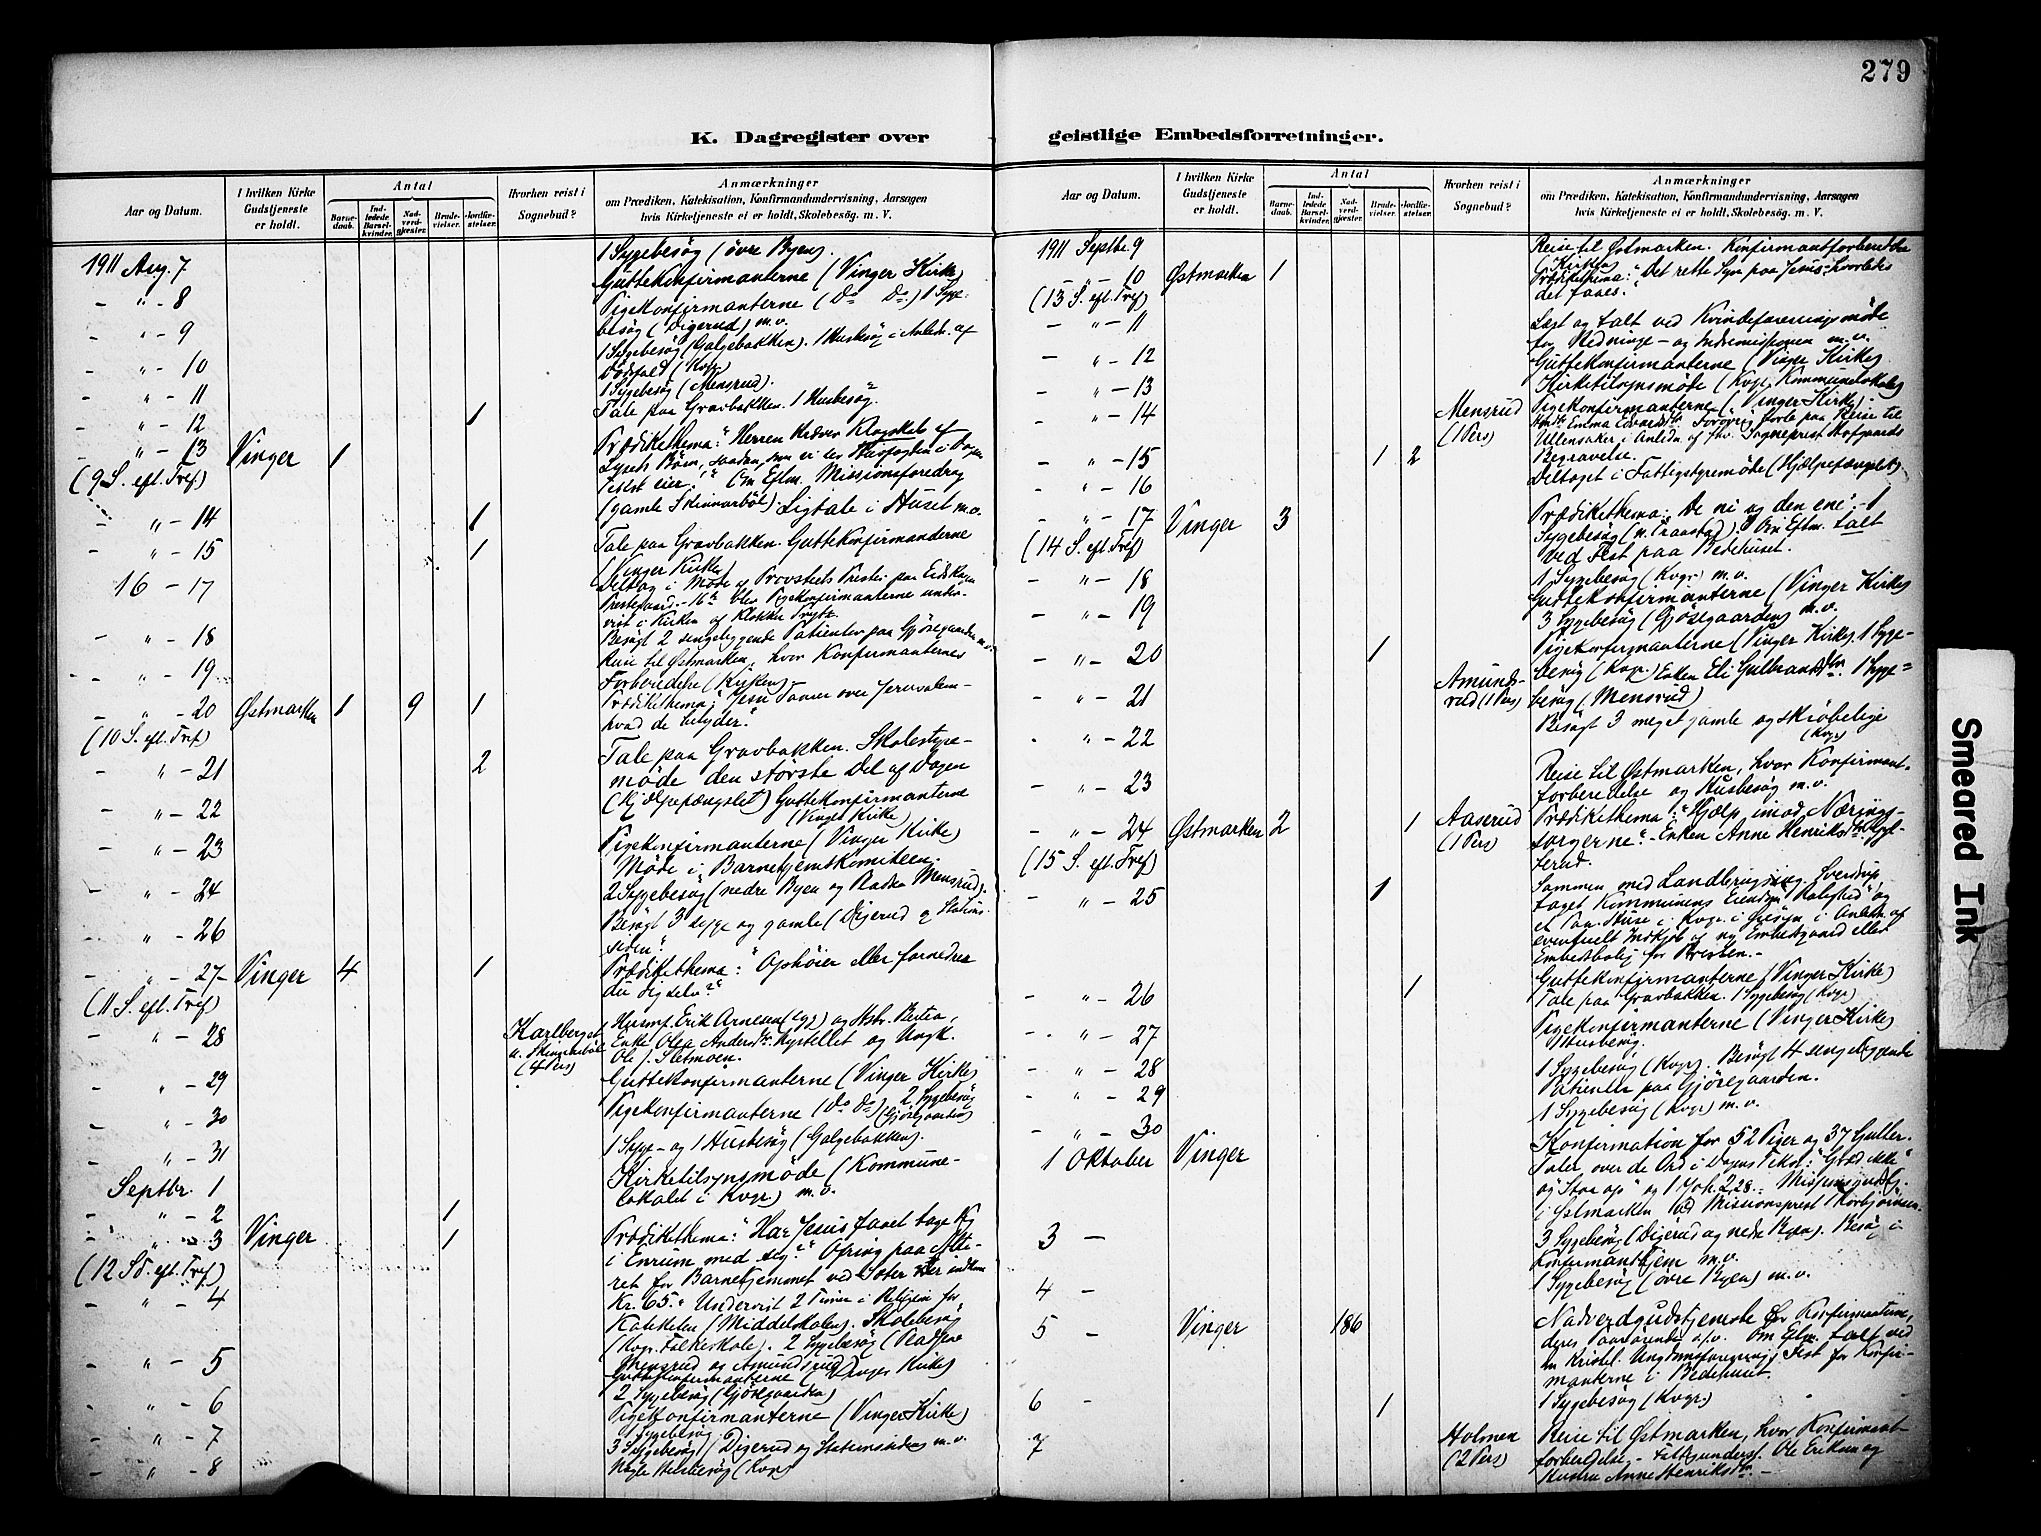 279
K. Dagregister over geistlige Embedsforretninger.
Aar og Datum.
I hvilken Kirke Gudstjeneste er holdt.
Antal
Barne-daab.
Ind-ledede Barsel-kvinder.
Nad-verd-gjester.
Brude-vielser.
Jordfæ-stelser.
Hvorhen reist i Sognebud?
Anmærkninger
om Prædiken, Katekisation, Konfirmandundervisning, Aarsagen
hvis Kirketjeneste ei er holdt, Skolebesøg. m. V.
1911 Aug. 7 1 Sygebesøg (övre Byen).
Guttekonfirmanterne (Vinger Kirke)
- " - 8 Pigekonfirmanterne (Do Do) 1 Syge-
besøg (Digerud) m.v.
- " - 9 1 Sygebesøg (Galgebakken). 1 Husbesøg i Anledn. af
Dödsfald (Kvgr.)
- " - 10 1 Sygebesøg (Mensrud).
- " - 11 Tale paa Gravbakken. 1 Husbesøg.
- " - 12 1
- " - 13 Vinger 1 Prædikethema: "Herren kræver Klogskab af
(9 S. eft. Tref.) Lysets Börn, saadan som vi lær Husfogden i Dagens
Text eier." Om Eftm. Missionsforedrag
- " - 14 1 (gamle Skinnarböl). Ligtale i Huset m.v.
- " - 15 1 Tale paa Gravbakken. Guttekonfirmanderne
(Vinger Kirke)
16 - 17 Deltog i Möde af Provstiets Prester paa Eidskogen
Prestegaard. - 16de blev Pigekonfirmanterne under-
vist i Kirken af Klokker
- " - 18 Besøgt 2 sengeliggende Patienter paa Gjösegaarden m.v.
- " - 19 Reise til Østmarken, hvor Konfirmanternes
Forberedelse (Kirken).
- " - 20 Østmarken 1 9 1 Prædikethema: "Jesu Taarer over Jerusalem -
(10 S. eft. Tref.) hvad de betyder."
- " - 21 2 Tale paa Gravbakken. Skolestyre-
möde den störste Del af Dagen
- " - 22 (Hjælpefængslet) Guttekonfirmanterne
(Vinger Kirke)
- " - 23 Pigekonfirmanterne (Vinger Kirke)
Möde i Barnehjemskomiteen.
- " - 24 2 Sygebesøg (nedre Byen og Mensrud).
- " - 26 Besøgt 3 syge og gamle (Digerud og Stations-
siden".
- " - 27 - Vinger 4 1 Prædikethema: "Ophöier eller fornedrer
(11 S. eft. Tref.) du dig selv?"
- " - 28 Karlberget Husmf. Erik Arnesen og Hstr. Bertea,
u. Skinnarböl Enke Olea Andersdtr. og Ungk.
(4 Pers) Ole J. Sletmoen.
- " - 29 Guttekonfirmanterne (Vinger Kirke)
- " - 30 Pigekonfirmanterne (Do Do) 2 Sygebesøg
(Gjösegaarden)
- " - 31 1 Syge- og 1 Husbesøg (Galgebakken).
Septbr. 1 Kirketilsynsmöde (Kommune-
lokalet i Kvgr.) m.v.
- " - 2 1
- " - 3 Vinger 1 Prædikethema: "Har Jesus faaet tage dig
(12 S. eft. Tref.) i Enrum med sig?" Ofring paa Alte-
ret for Barnehjemmet ved Sæter
- " - 4 Kr. 65.- Undervist 2 Timer i Religion for
Kateketen (Middelskolen). Skolebesøg
(Kvgr. Folkeskole). 2 Sygebesøg
- " - 5 Mensrud og Amundsrud)
Guttekonfirmanterne (Vinger Kirke)
2 Sygebesøg (Gjösegaarden)
- " - 6 Pigekonfirmanterne (Vinger Kirke)
1 Sygebesøg
- " - 7 3 Sygebesøg (Digerud og Stationssiden) m.v.
- " - 8 Nogle Husbesøg (Kvgr)
Aar og Datum.
I hvilken Kirke Gudstjeneste er holdt.
Antal
Barne-daab.
Ind-ledede Barsel-kvinder.
Nad-verd-gjester.
Brude-vielser.
Jordfæ-stelser.
Hvorhen reist i Sognebud?
Anmærkninger
om Prædiken, Katekisation, Konfirmandundervisning, Aarsagen
hvis Kirketjeneste ei er holdt, Skolebesøg. m. V.
1911 Septbr. 9 Reise til Østmarken. Konfirmantforberedelse
(Kirken)
- - 10 Østmarken 1 Prædikethema: "Det rette Syn paa Jesus - hvorledes
(13 S. eft. Tref) det faaes."
- " - 11 Læst og talt ved Kvindeforeningsmöde
for Hedninge- og Indremissionen m.v.
- " - 12 Guttekonfirmanterne (Vinger Kirke)
- " - 13 Kirketilsynsmöde (Kvgr. Kommunelokale)
- " - 14 Mensrud Pigekonfirmanterne (Vinger Kirke).
(1 Pers) Emma Edvardsdtr. - Forövrig borte paa Reise til
Ullensaker i Anledn. af fhv. Sogneprest Hofgaards
Begravelse.
- " - 15 1 2
- " - 16 Deltaget i Fattigstyremöde (Hjælpefængslet).
- " - 17 Vinger 3 Prædikethema: "De ni og den ene". - 1
(14 S. eft. Tref) Sygebesøg (n. Traastad). Om Eftm. talt
ved Fest paa Bedehuset.
- " - 18 1 Sygebesøg (Kvgr.) m.v.
- " - 19 Guttekonfirmanterne (Vinger Kirke)
3 Sygebesøg (Gjösegaarden) m.v.
- " - 20 1 Pigekonfirmanterne (Vinger Kirke). 1 Syge-
Amunds- besøg (Kvgr.) Enken Eli Gulbrandsdtr. 1 Syge-
- " - 21 rud (1 Pers) besøg (Mensrud)
- " - 22 Besøgt 3 meget gamle og skröbelige
(Kvgr)
- " - 23 Reise til Østmarken, hvor Konfirmant-
forberedelse og Husbesøg m.v.
- " - 24 Østmarken 2 1 Aaserud Prædikethema: "Hjælp imod Nærings-
(15 S. eft. Tref) (1 Pers) sorgerne". - Enken Anne Henriksdtr.
- " - 25 1 Sammen med Landbrugsing. Sverdrup,
taget Kommunens Eiendom "Rolighed" og
et Par Huse i Kvgr. i Öiesyn i Anledn. af
eventuelt Indkjöb af ny Embedsgaard eller
Embedsbolig for Presten. -
- " - 26 1 Guttekonfirmanterne (Vinger Kirke)
Tale paa Gravbakken. 1 Sygebesøg (Kvgr.)
- " - 27 Pigekonfirmanterne (Vinger Kirke)
1 Husbesøg.
- " - 28 1 Sygebesøg (Kvgr). Besøgt 4 sengeliggende
- " - 29 Patienter paa Gjösegaarden.
- " - 30 1 Sygebesøg (Kvgr) m.v.
1 Oktober Vinger Konfirmation for 52 Piger og 37 Gutter.
Taler over de Ord i Dagens Tekst: "Græd ikke"
og "Staa op" og 1 Joh. 2,28.-
i Østmarken ved Missionsprest Torbjörnsen.
3 - 3 Sygebesøg (Digerud og nedre Byen). Besøg i
Konfirmanthjem m.v.
4 - 1 Sygebesøg (övre Byen) m.v.
5 - Vinger 186 Nadverdgudstjeneste for Konfirmanterne,
deres Paarörende o.s.v. Om Eftm. talt ved
en Kristel. Ungdomsforenings Fest for Konfir-
manterne i Bedehuset.
6 - 1 1 Sygebesøg (Kvgr)
7 Holmen Reise til Østmarken, hvor Konfirmant-
(2 Pers) forberedelse. - Ole Eriksen og
Hustru Anne Henriksdtr. -
Smeared Ink